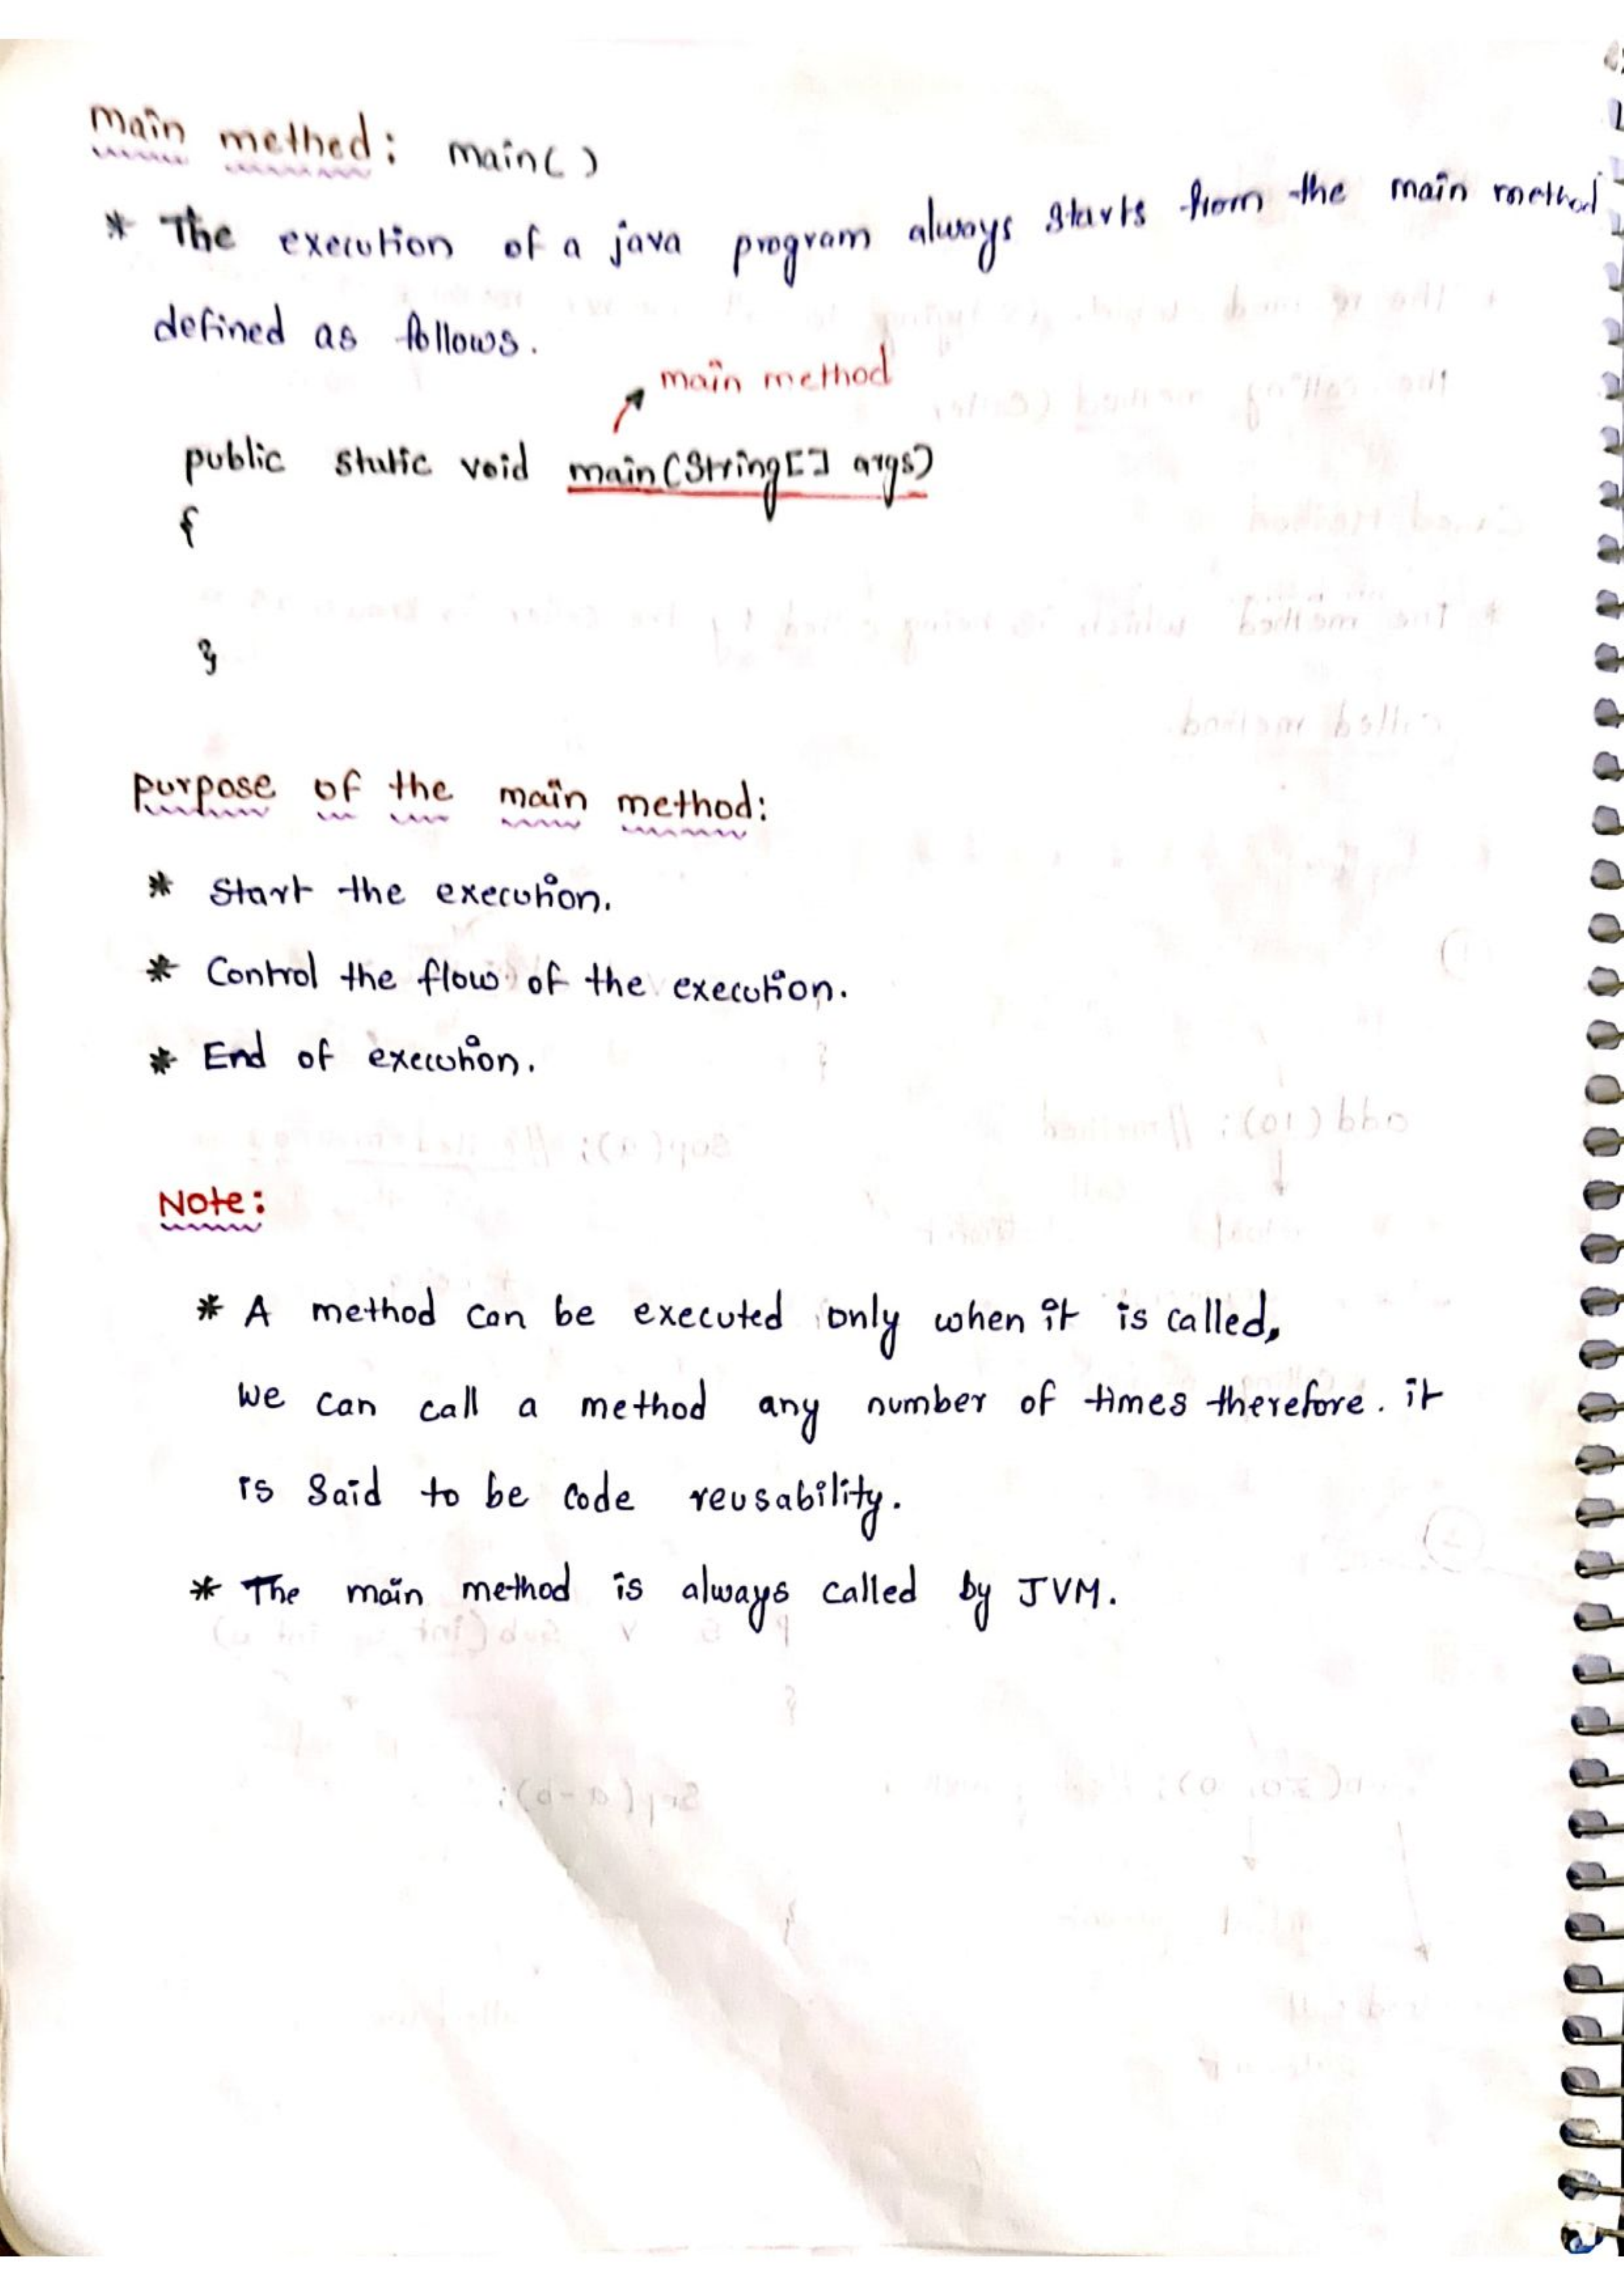 main method: main()
* The execution of a java program always starts from the main method
defined as follows.
main method
public static void main(String[] args)
{
}
purpose of the main method:
* Start the execution.
* Control the flow of the execution.
* End of execution.
Note:
* A method can be executed only when it is called,
we can call a method any number of times therefore. it
is said to be code reusability.
* The main method is always called by JVM.